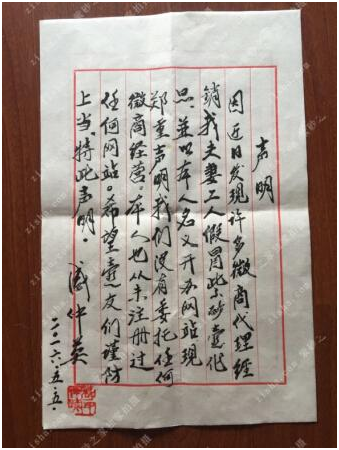 声明
因近日发现许多微商代理经
销我夫妻二人假冒紫砂壶作
品,并以本人名义开办网站现
郑重声明我们没有委托任何
微商经营。本人也从未注册过
任何网站。希望壶友们谨防
上当,特此声明。
咸仲英
二〇一六.五.五.